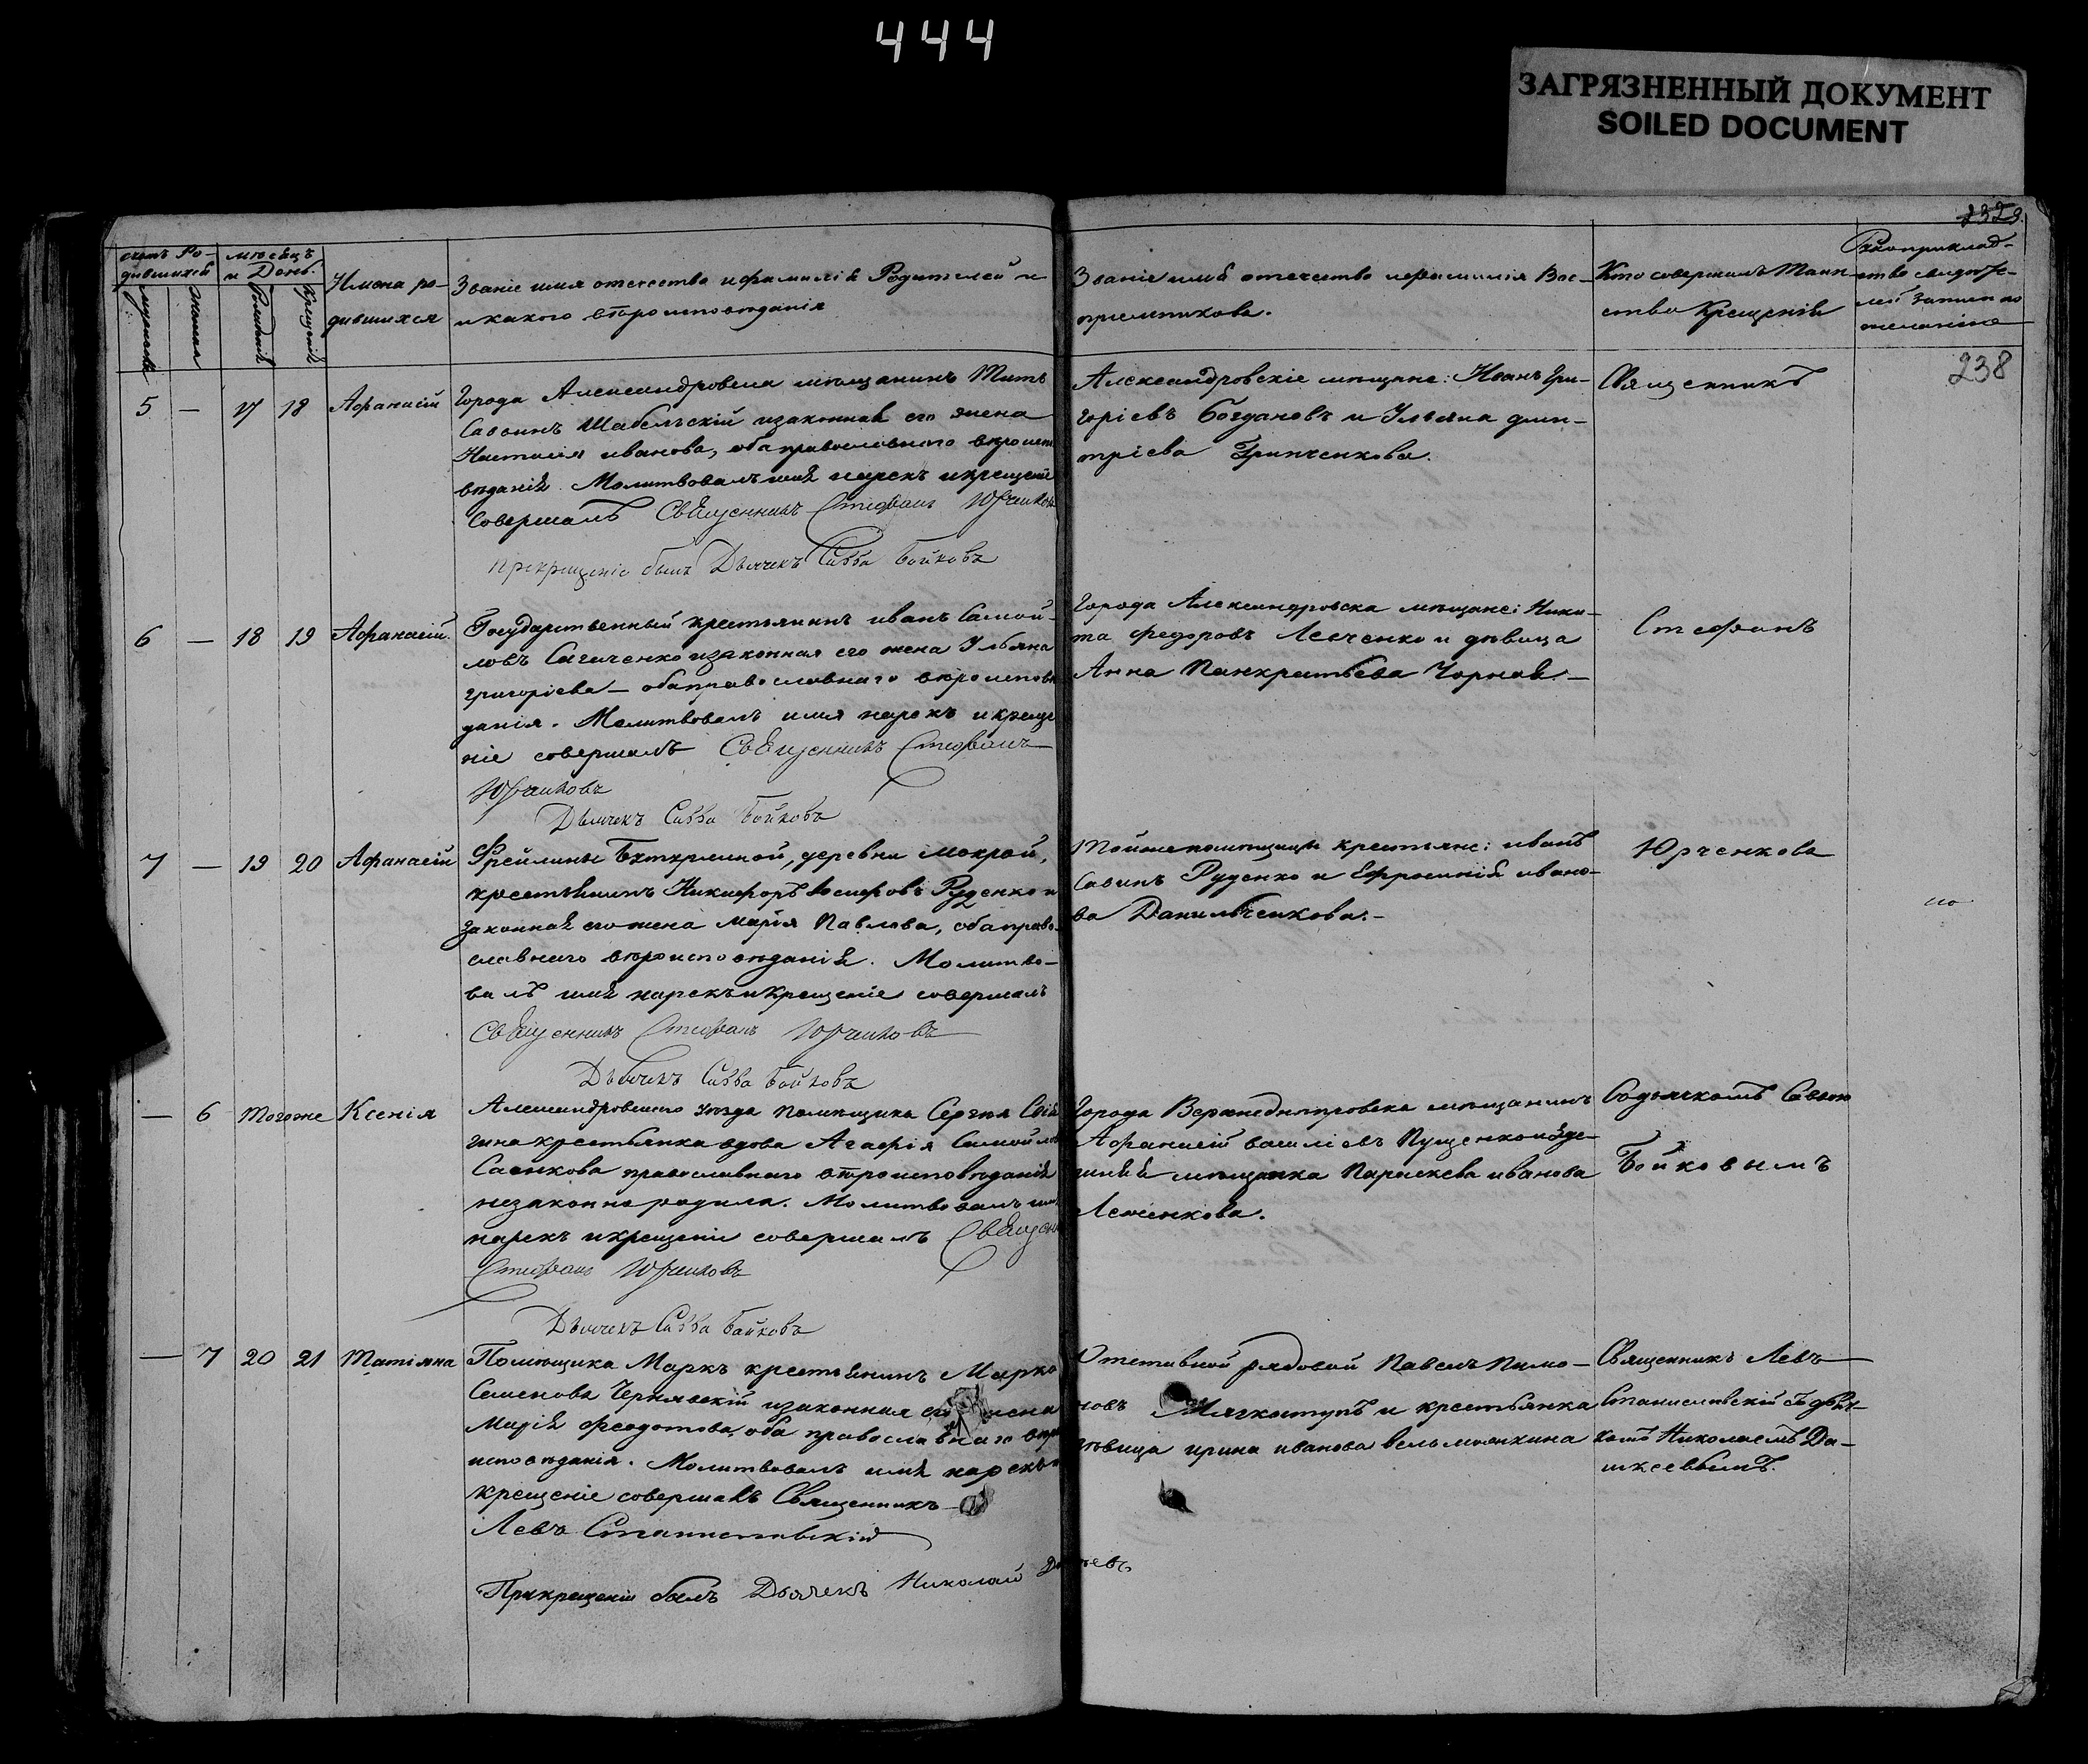 444
ЗАГРЯЗНЕННЫЙ ДОКУМЕНТ
SOILED DOCUMENT
238
Имена ро-
дившихся
Званіе имя отечество и фамилія Родителей и
и какого вѣроисповѣданія
Званіе имя отечество и фамилія Вос-
пріемниковъ.
Кто совершалъ Таин-
ство Крещенія
5 — 17 18 Афанасій
Города Александровска мѣщанинъ Титъ
Саввинъ Шабельскій и законная его жена
Настасія Иванова, оба православнаго вѣроиспо
вѣданія. Молитвовалъ имя нарекъ и крещеніе
совершалъ Священникъ Стефанъ Юрченковъ
При крещеніи былъ Дьячекъ Савва Бойковъ
Александровскіе мѣщане: Иванъ Гри-
горіевъ Богдановъ и Ульяна Дми-
тріева Гринченкова.
Священникъ
6 — 18 19 Афанасій
Государственный крестьянинъ Иванъ Самой-
ловъ и законная его жена Ульяна
Григоріева — оба православнаго вѣроисповѣ
данія. Молитвовалъ имя нарекъ и креще
ніе совершалъ Священникъ Стефанъ
Юрченковъ
Дьячекъ Савва Бойковъ
Города Александровска мѣщане: Ники-
та Федоровъ Лесченко и дѣвица
Анна Панкратьева Чорная.—
Стефанъ
7 — 19 20 Афанасій
Фрейлины деревни Мокрой,
крестьянинъ Никифоръ Іосифовъ Руденко и
законная его жена Марія Павлова, оба право-
славнаго вѣроисповѣданія. Молитво-
валъ имя нарекъ и крещеніе совершалъ
Священникъ Стефанъ Юрченковъ
Дьячекъ Савва Бойковъ
Той же помѣщицы крестьяне: Иванъ
Савинъ Руденко и Ефросинія Ивано-
ва Данильченкова.—
Юрченкова
— 6 Того же Ксенія
Александровскаго уѣзда помѣщика Сергія
крестьянка вдова Агафія Самойло
Саенкова православнаго вѣроисповѣданія
незаконно родила. Молитвовалъ имя
нарекъ и крещеніе совершалъ Священ
Стефанъ Юрченковъ
Дьячекъ Савва Бойковъ
Города Верхнеднѣпровска мѣщанинъ
Афанасій Василіевъ Пущенко и зде-
шняя мѣщанка Параскева Иванова
Лесченкова.
Со дьячкомъ Саввою
Бойковымъ
— 7 20 21 Татіяна
Помѣщика Маркъ крестьянинъ Марко
Семеновъ Чернявскій и законная его жена
Марія Феодотова, оба православнаго вѣро
исповѣданія. Молитвовалъ имя нарекъ и
крещеніе совершалъ Священникъ
Левъ Станиславскій
При крещеніи былъ Дьячекъ Николай
Отставной рядовой Павелъ Пимо-
новъ Мягкоступъ и крестьянка
дѣвица Ирина Иванова
Священникъ Левъ
Станиславскій съ дьяч-
комъ Николаемъ Да-